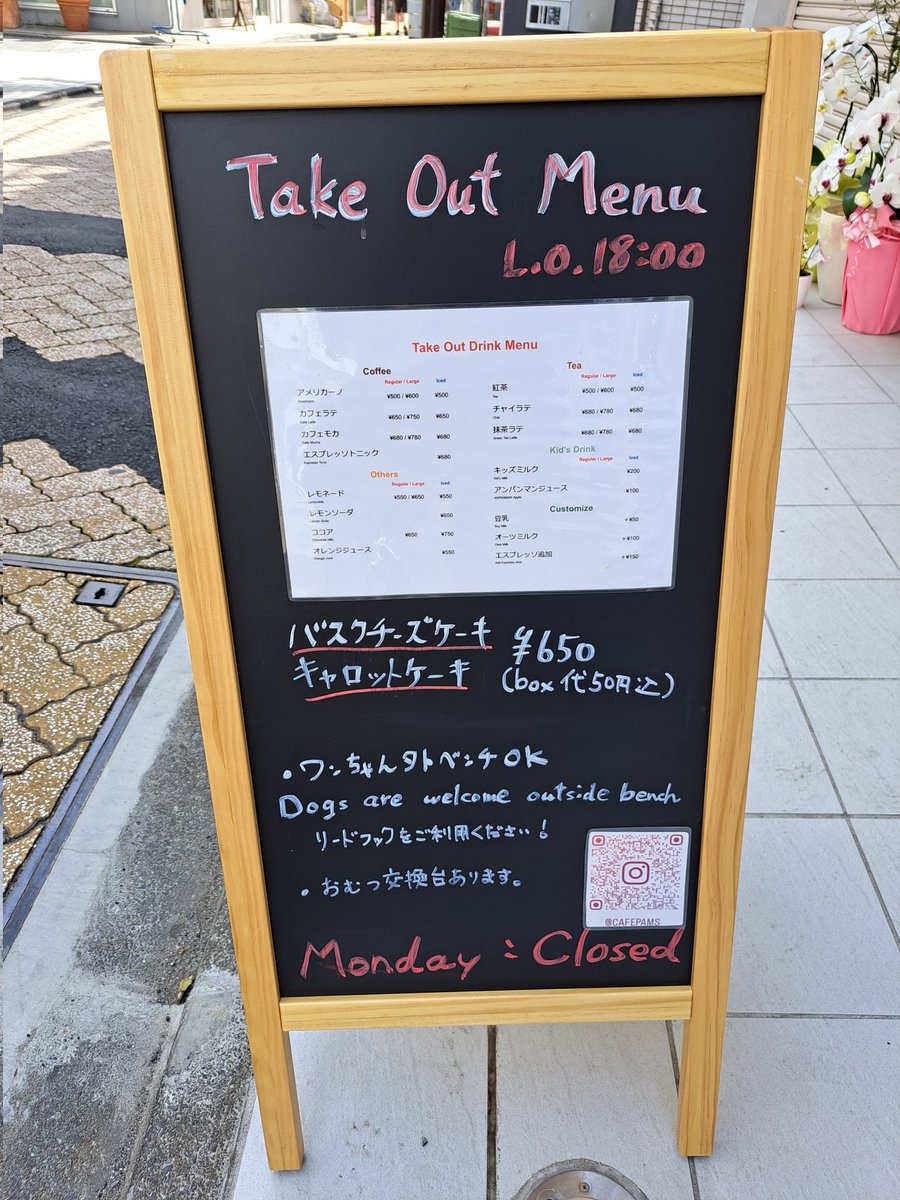 Take Out Menu
L.O. 18:00
Take Out Drink Menu
Coffee
Regular / Large Iced
アメリカーノ ¥500 / ¥600 ¥500
Americano
カフェラテ ¥650 / ¥750 ¥650
Cafe Latte
カフェモカ ¥680 / ¥780 ¥680
Cafe Mocha
エスプレッソトニック ¥680
Espresso Tonic
Others
Regular / Large Iced
レモネード ¥550 / ¥650 ¥550
Lemonade
レモンソーダ ¥650
Lemon Soda
ココア ¥650 ¥750
Chocolate Milk
オレンジジュース ¥550
Orange Juice
Tea
Regular / Large Iced
紅茶 ¥500 / ¥600 ¥500
Tea
チャイラテ ¥680 / ¥780 ¥680
Chai
抹茶ラテ ¥680 / ¥780 ¥680
Green Tea Latte
Kid's Drink
Regular / Large Iced
キッズミルク ¥200
Kid's Milk
アンパンマンジュース ¥100
Customize
豆乳 +¥50
Soy Milk
オーツミルク +¥100
Oats Milk
エスプレッソ追加 +¥150
Add Espresso shot
バスクチーズケーキ ¥650
キャロットケーキ (box代50円込)
・ワンちゃん外ベンチOK
Dogs are welcome outside bench
リードフックをご利用ください!
・おむつ交換台あります。
@CAFEPAMS
Monday : Closed